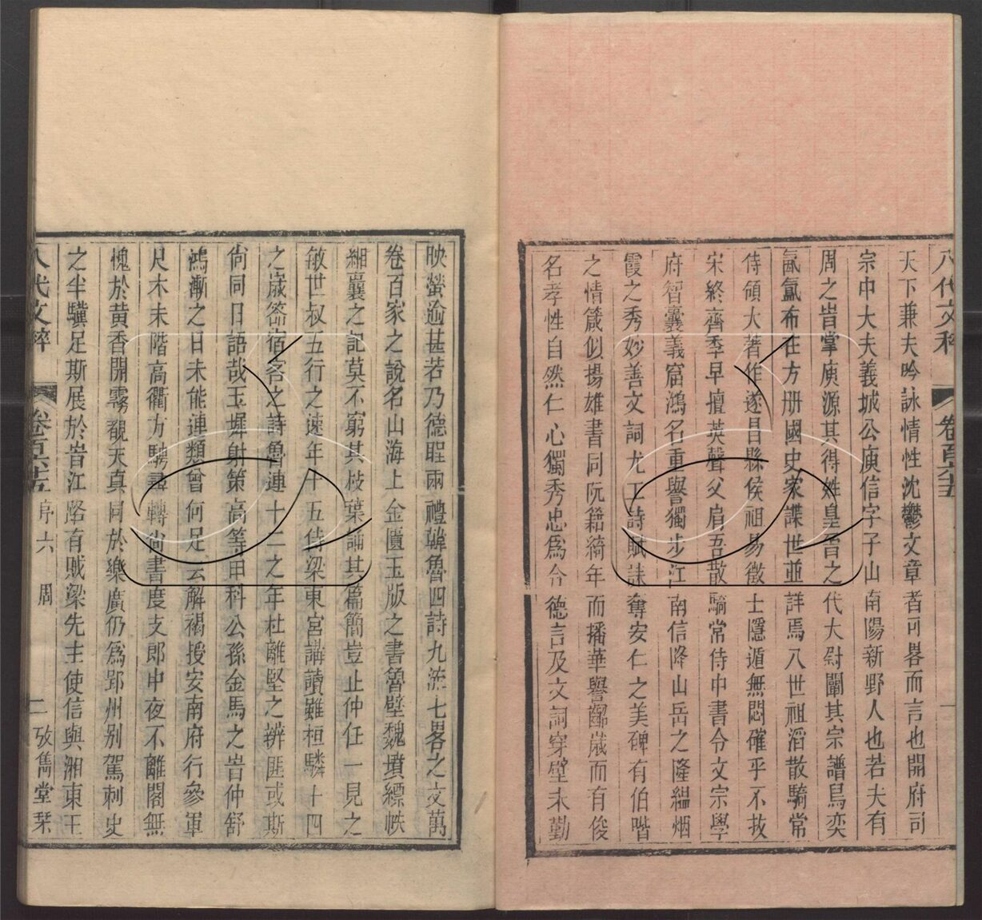 八代文粹
卷百六十五
天下兼夫吟詠情性沈鬱文章者可畧而言也開府司
宗中大夫義城公庾信字子山南陽新野人也若夫有
周之旹掌庾源其得姓皇晉之代大尉闡其宗譜烏奕
氤氳布在方册國史家諜世並詳焉八世祖滔散騎常
侍領大著作遂昌縣侯祖易徵士隱遁無悶確乎不拔
宋終齊季早擅英聲父肩吾散騎常侍中書令文宗學
府智囊義窟鴻名重譽獨步江南信降山岳之隆縕烟
霞之秀妙善文詞尤工詩賦誄奪安仁之美碑有伯喈
之情箴似揚雄書同阮籍綺年而播華譽齠歲而有俊
名孝性自然仁心獨秀忠爲令德言及文詞穿壁未勤
映螢逾甚若乃德聖兩禮韓魯四詩九流七畧之文萬
卷百家之說名山海上金匱玉版之書魯壁魏墳縹帙
緗囊之記莫不窮其枝葉誦其篇簡豈止仲任一見之
敏世叔五行之速年十五侍梁東宮講讀雖桓驎十四
之歲答宿客之詩魯連十二之年杜離堅之辨匪或斯
尙同日語哉玉墀射策高等甲科公孫金馬之旹仲舒
鴻漸之日未能連類曾何足云解褐授安南府行參軍
尺木未階高衢方騁尋轉尙書度支郎中夜不離閣無
愧於黄香開霧覩天真同於樂廣仍爲郢州别駕刺史
之半驥足斯展於旹江路有賊梁先主使信與湘東王
八代文粹
卷百六十五
序六 周
二
攷雋堂栞